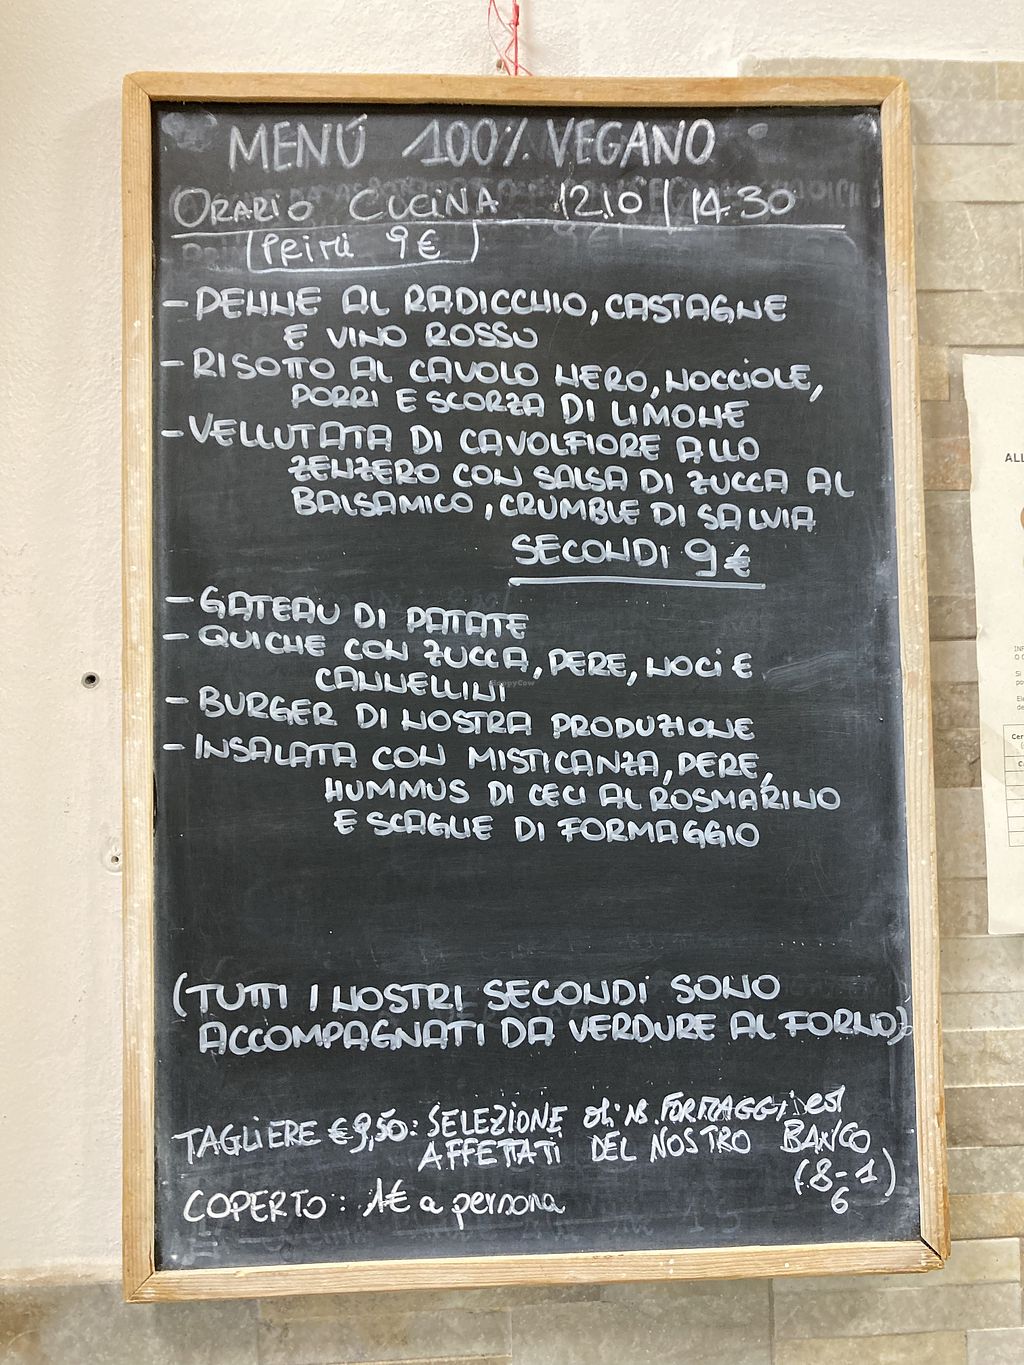 MENÚ 100% VEGANO
ORARIO CUCINA 12.10 | 14.30
PRIMI 9€
- PENNE AL RADICCHIO, CASTAGNE
E VINO ROSSO
- RISOTTO AL CAVOLO NERO, NOCCIOLE,
PORRI E SCORZA DI LIMONE
- VELLUTATA DI CAVOLFIORE ALLO
ZENZERO CON SALSA DI ZUCCA AL
BALSAMICO, CRUMBLE DI SALVIA
SECONDI 9€
- GATEAU DI PATATE
- QUICHE CON ZUCCA, PERE, NOCI E
CANNELLINI
- BURGER DI NOSTRA PRODUZIONE
- INSALATA CON MISTICANZA, PERE,
HUMMUS DI CECI AL ROSMARINO
E SCAGLIE DI FORMAGGIO
(TUTTI I NOSTRI SECONDI SONO
ACCOMPAGNATI DA VERDURE AL FORNO)
TAGLIERE € 9,50: SELEZIONE di FORMAGGI ed
AFFETTATI DEL NOSTRO BANCO
(8-1)
6
COPERTO: 1€ a persona
HappyCow
ALL